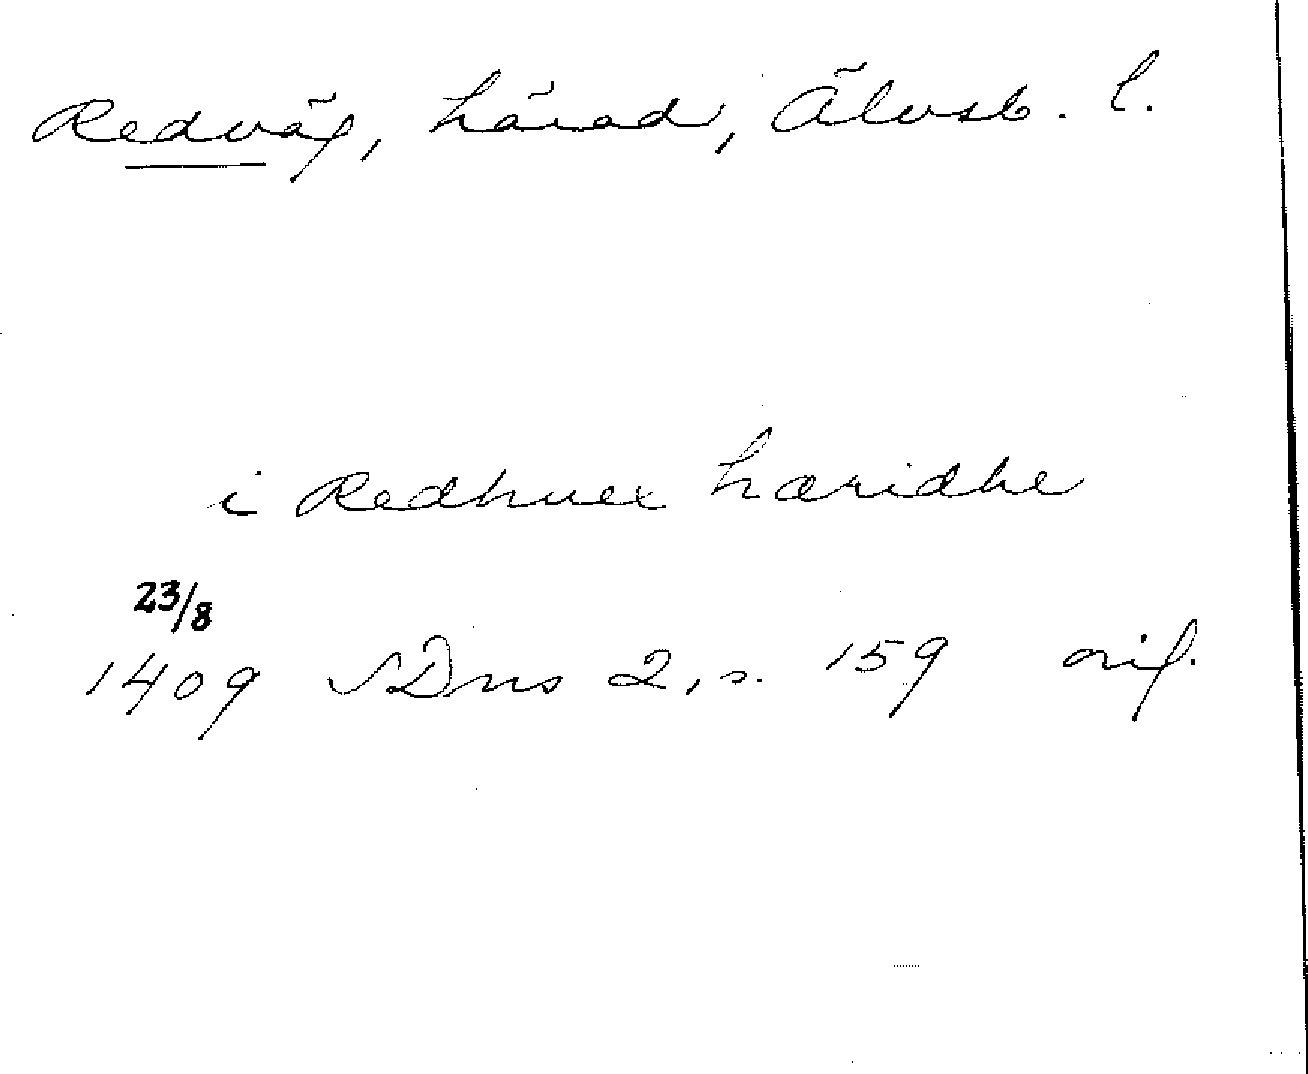 Redväg, härad, Älvsb. l.
i Redhuex hæridhe
23/8
1409 SDns 2, s. 159 orig.